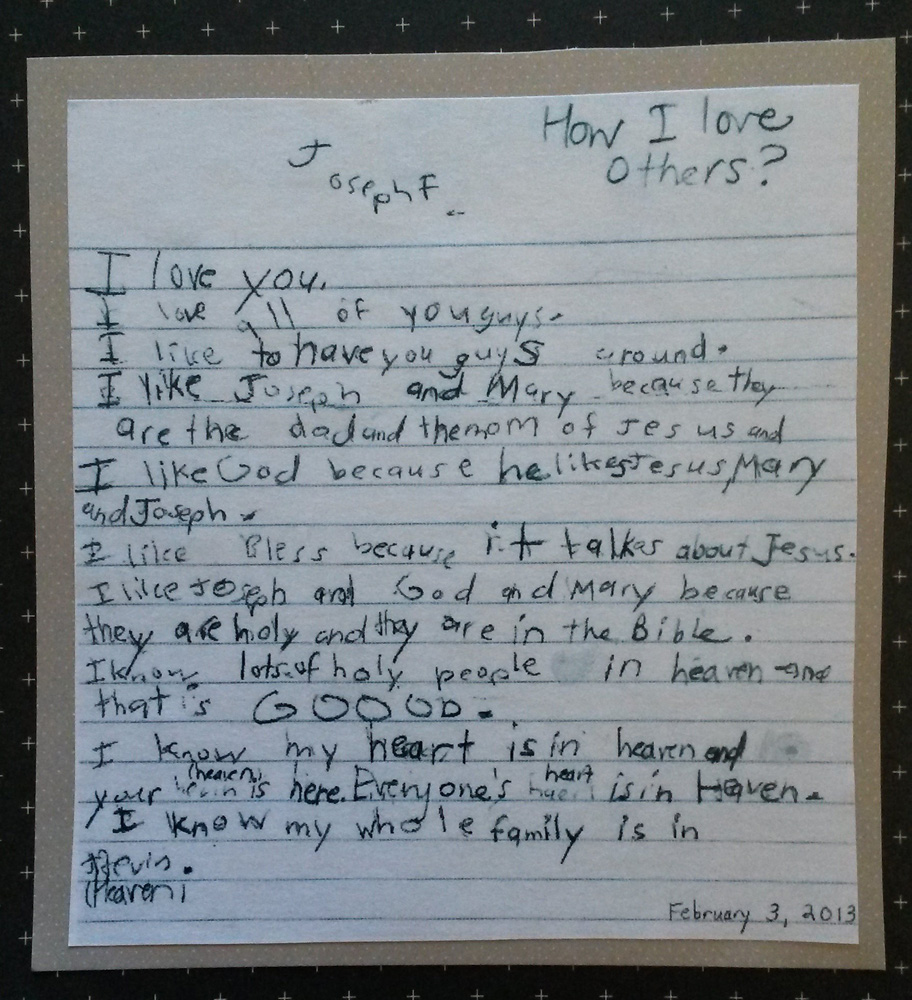 How I love
others?
Joseph F.
I love you.
I love all of you guys.
I like to have you guys around.
I like Joseph and Mary because they
are the dad and the mom of Jesus and
I like God because he likes Jesus, Mary
and Joseph.
I like Bless because it talkes about Jesus.
I like Joseph and God and Mary because
they are holy and they are in the Bible.
I know lots of holy people in heaven and
that is GOOOD.
I know my heart is in heaven and
(heaven) heart
your hevin is here. Everyone's is in Haven.
I know my whole family is in
Hevin.
(Heaven)
February 3, 2013